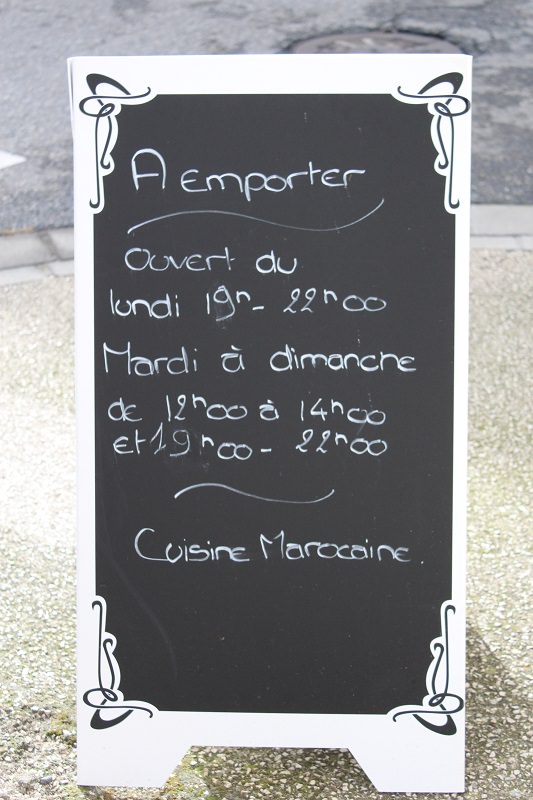 A emporter
Ouvert du
lundi 19h - 22h00
Mardi à dimanche
de 12h00 à 14h00
et 19h00 - 22h00
Cuisine Marocaine